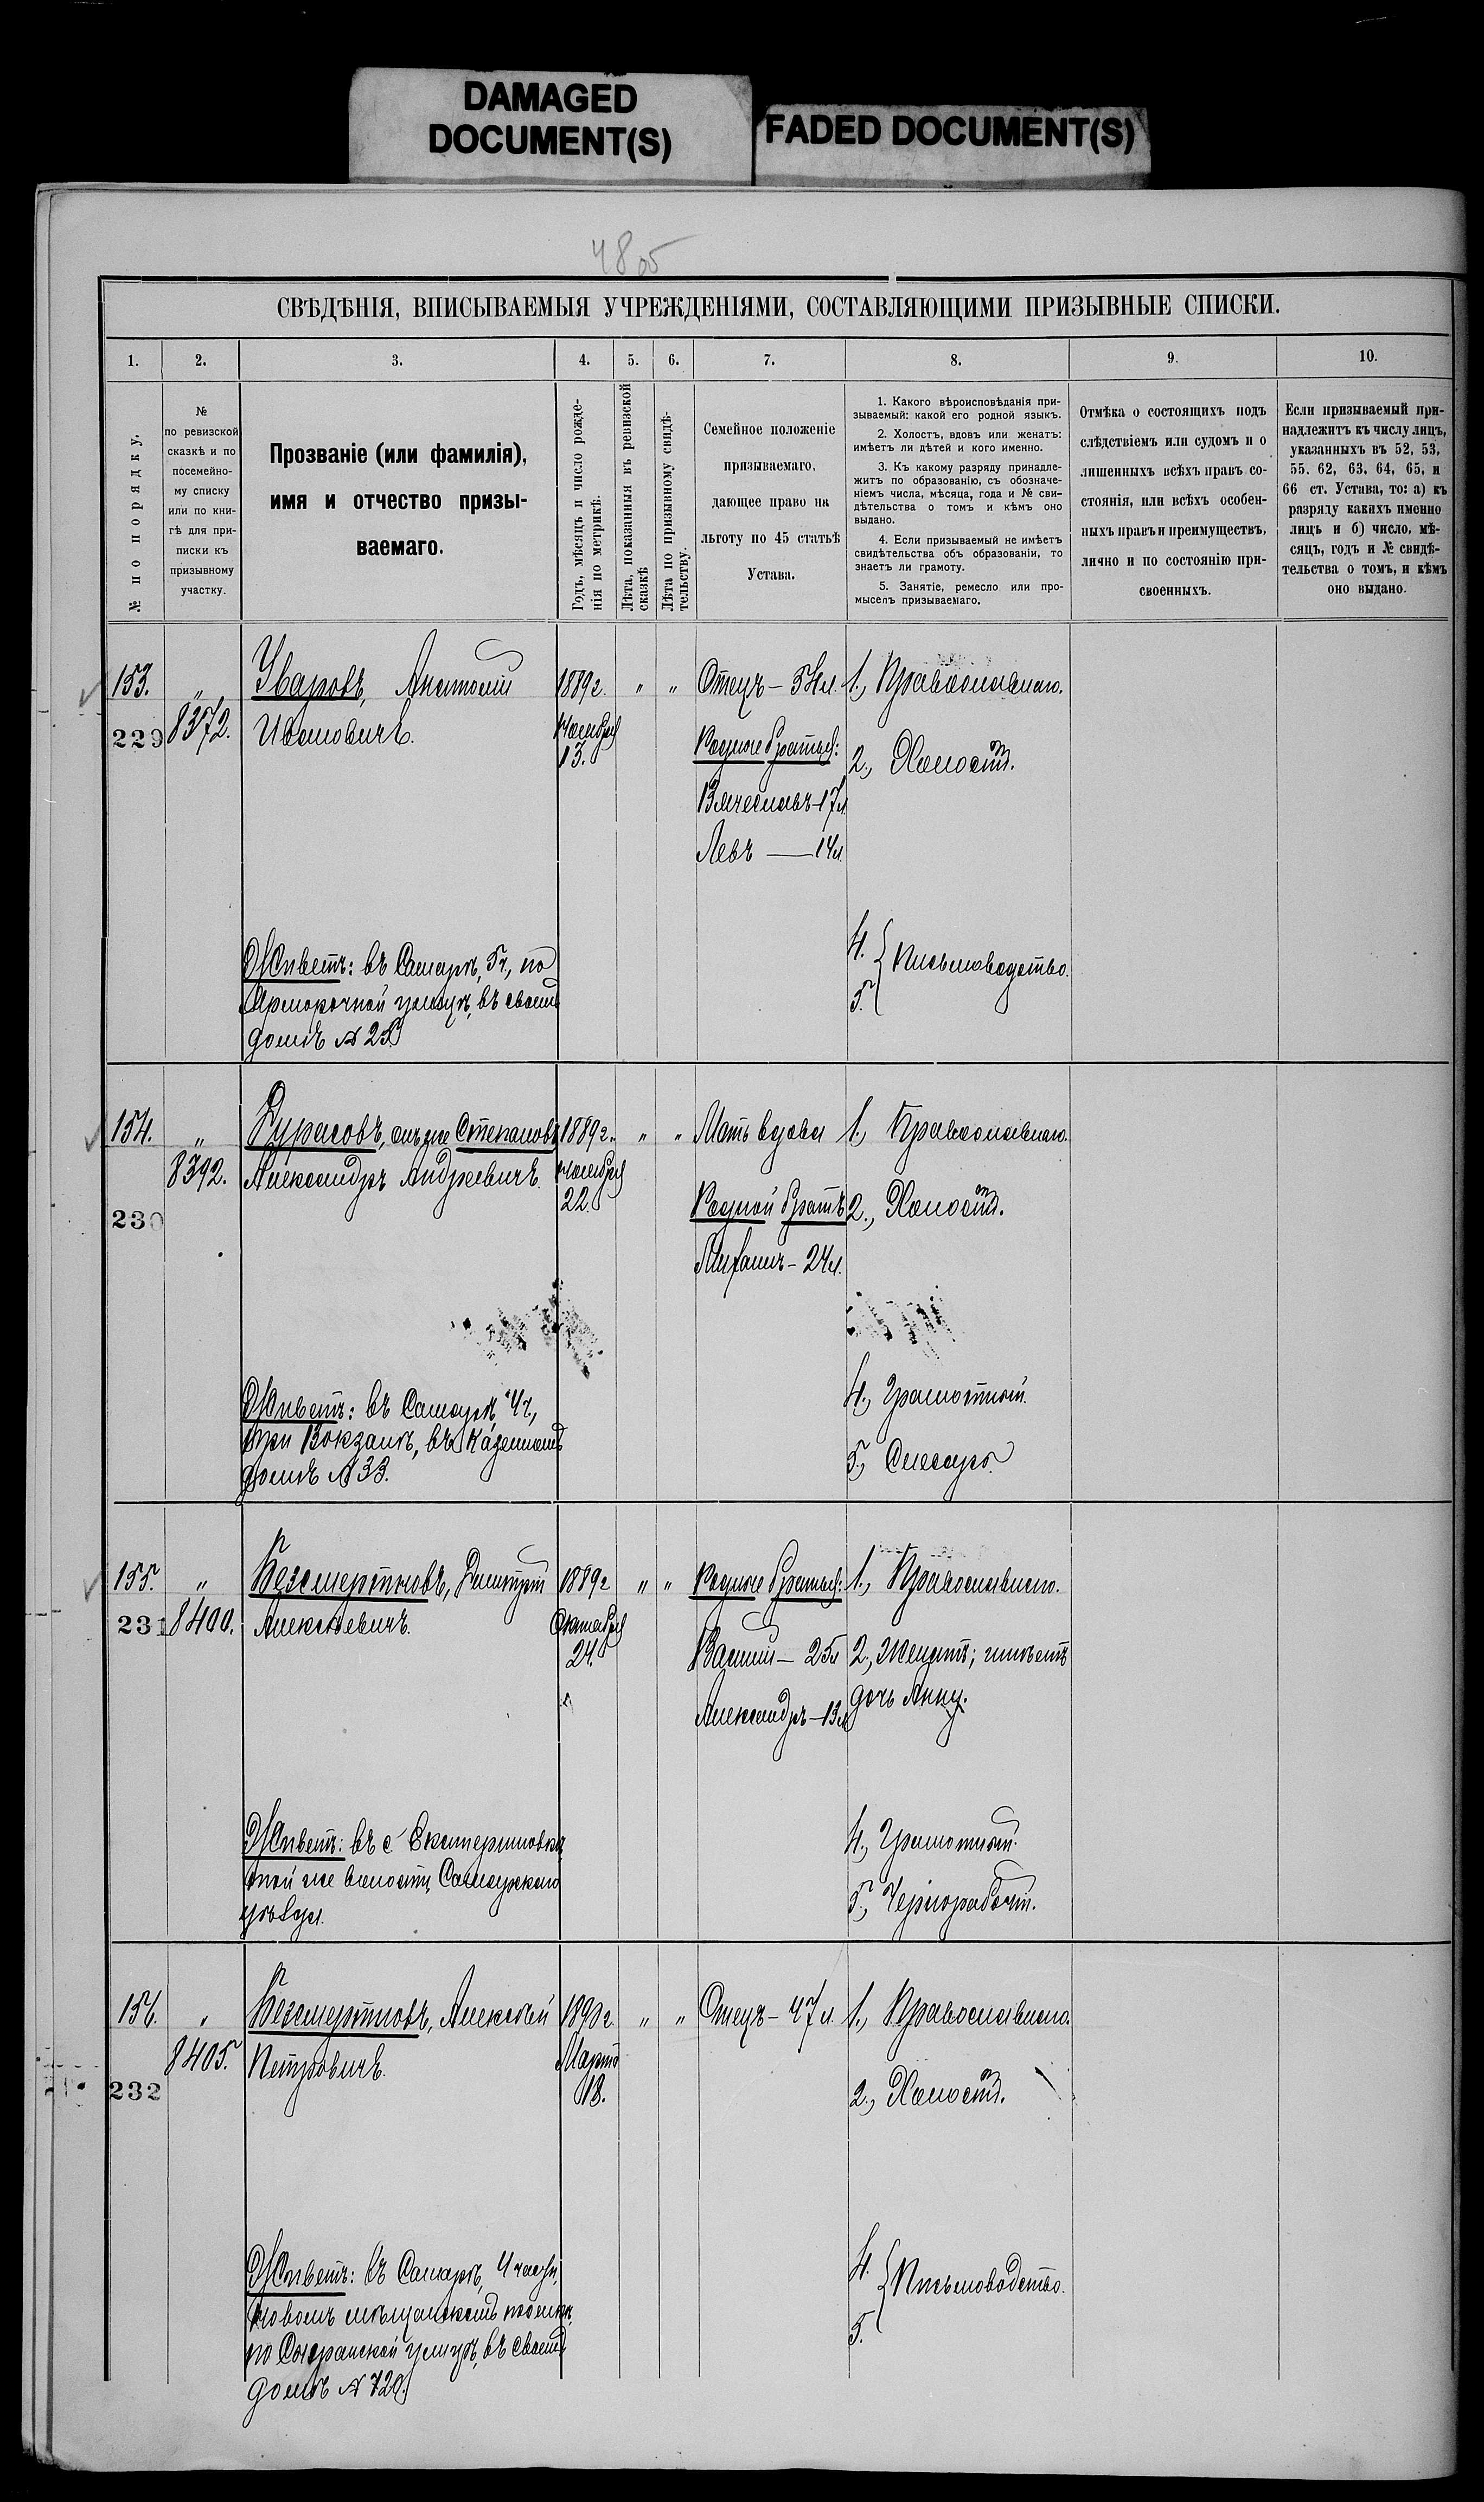 DAMAGED
DOCUMENT(S)
FADED DOCUMENT(S)
4805
СВѢДѢНІЯ, ВПИСЫВАЕМЫЯ УЧРЕЖДЕНІЯМИ, СОСТАВЛЯЮЩИМИ ПРИЗЫВНЫЕ СПИСКИ.
1. 2. 3. 4. 5. 6. 7. 8. 9. 10.
№ по порядку.
№
по ревизской
сказкѣ и по
посемейно-
му списку
или по кни-
гѣ для при-
писки къ
призывному
участку.
Прозваніе (или фамилія),
имя и отчество призы-
ваемаго.
Годъ, мѣсяцъ и число рожде-
нія по метрикѣ.
Лѣта, показанныя въ ревизской
сказкѣ
Лѣта по призывному свидѣ-
тельству.
Семейное положеніе
призываемаго,
дающее право на
льготу по 45 статьѣ
Устава.
1. Какого вѣроисповѣданія при-
зываемый: какой его родной языкъ.
2. Холостъ, вдовъ или женатъ:
имѣетъ ли дѣтей и кого именно.
3. Къ какому разряду принадле-
житъ по образованію, съ обозначе-
ніемъ числа, мѣсяца, года и № сви-
дѣтельства о томъ и кѣмъ оно
выдано.
4. Если призываемый не имѣетъ
свидѣтельства объ образованіи, то
знаетъ ли грамоту.
5. Занятіе, ремесло или про-
мыселъ призываемаго.
Отмѣка о состоящихъ подъ
слѣдствіемъ или судомъ и о
лишенныхъ всѣхъ правъ со-
стоянія, или всѣхъ особен-
ныхъ правъ и преимуществъ,
лично и по состоянію при-
своенныхъ.
Если призываемый при-
надлежитъ къ числу лицъ,
указанныхъ въ 52, 53,
55, 62, 63, 64, 65, и
66 ст. Устава, то: а) къ
разряду какихъ именно
лицъ и б) число, мѣ-
сяцъ, годъ и № свидѣ-
тельства о томъ, и кѣмъ
оно выдано.
153.
229
"
8372.
Уваровъ, Анатолій
Ивановичъ.
1889г.
Ноября
13.
" "
Отецъ — 54л.
Родные братья:
Вячеславъ-17л
Левъ — 14л.
1., Православнаго.
2., Холостъ.
4.
5.
Письмоводство.
Живетъ: въ Самарѣ, 5ч., по
Ярморочной улицѣ, въ своемъ
домѣ №25
154.
230
"
8392.
Дурасовъ, онъ же Степановъ
Александръ Андреевичъ.
1889г.
Ноября
22.
" "
Мать вдова
Родной братъ
- 24л.
1., Православнаго.
2., Холостъ.
4., Грамотный.
5., Слесарь.
Живетъ: въ Самарѣ, 4ч.,
при Вокзалѣ, въ Казенномъ
домѣ №33.
155.
231
"
8400.
Безсмертновъ, Дмитрій
Алексѣевичъ.
1889г
Октября
24.
" "
Родные братья:
Василій — 25л
Александръ — 13л
1., Православнаго.
2., Женатъ; имѣетъ
дочь Анну.
4., Грамотный.
5., Чернорабочій.
Живетъ: въ с. Екатериновкѣ,
той же волости, Самарскаго
уѣзда.
156.
232
"
8405.
Безсмертновъ, Алексѣй
Петровичъ.
1890г.
Марта
18.
" "
Отецъ — 47л.
1., Православнаго.
2., Холостъ.
4.
5.
Письмоводство.
Живетъ: въ Самарѣ, 4 части,
новомъ мѣщанскомъ поселкѣ,
по Сызранской улицѣ, въ своемъ
домѣ №720.